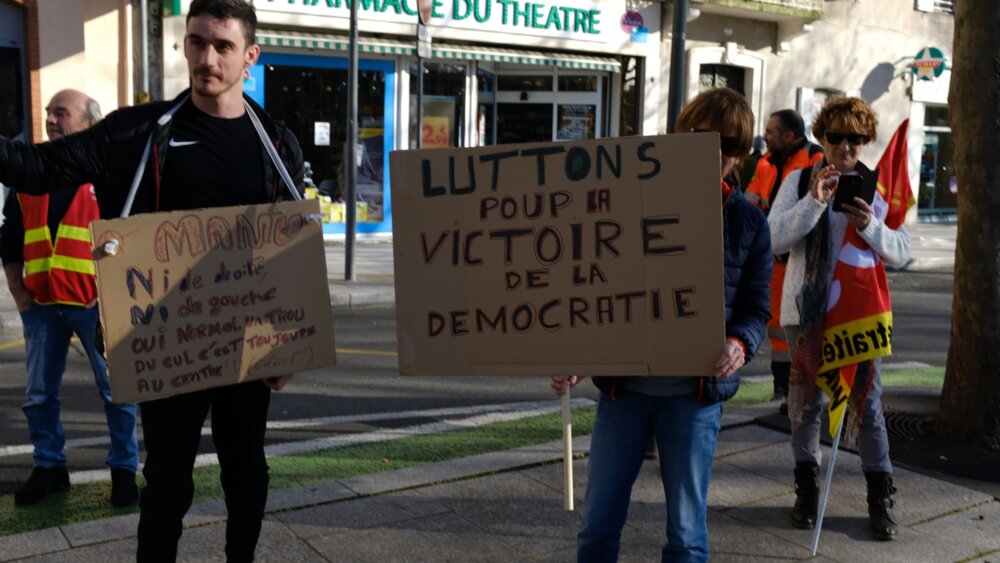 PHARMACIE DU THEATRE
MANU
Ni de droite,
Ni de gauche
OUI NORMAL UN TROU
DU CUL C'EST TOUJOURS
AU CENTRE!!
LUTTONS
POUR LA
VICTOIRE
DE LA
DEMOCRATIE
etraité